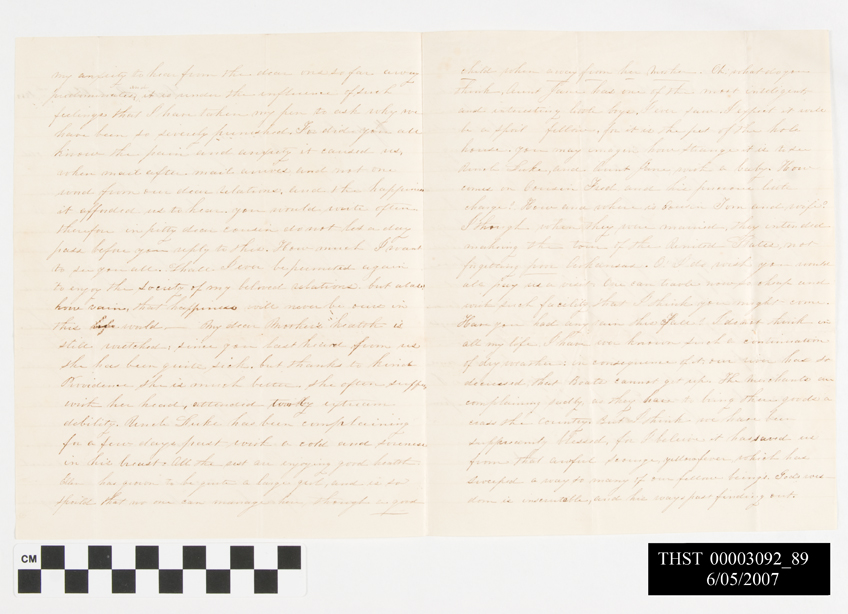 my anxiety to hear from the dear ones so far away
it is under the influence of such
feelings that I have taken my pen to ask why we
have been so severely punished. you all
know the pain and anxiety it caused us,
when mail after mail arrived and not one
word from our dear relatives, and the happiness
it afforded us to hear, you would write often
therefore in pity dear cousin do not let a day
pass before you reply to this. How much I want
to see you all. Shall I ever be permitted again
to enjoy the society of my beloved relations. but alas
how vain, that happiness will never be ours in
this world. — My dear Mother's health is
still wretched, since you last heard from us
she has been quite sick. but thanks to kind
Providence she is much better. she often suffers
with her head, attended by extreme
debility. Uncle Luke has been complaining
for a few days past with a cold and soreness
in his breast. All the rest are enjoying good health
has grown to be quite a large girl, and is so
spoilt that no one can manage her, though a good
child when away from her Mother. Oh, what do you
think, Aunt Jane has one of the most intelligent
and interesting little boys, I ever saw I expect it will
be a spoilt fellow, for it is the pet of the whole
house. you may imagine how strange it is to see
Uncle Luke, and Aunt Jane with a baby. How
comes on Cousin Fred and his precious little
charge? How and where is Cousin Tom and wife?
I thought when they were married, they intended
making the tour of the United States, not
forgetting poor Arkansas. O I do wish you would
all pay us a visit. One can travel now so cheap and
with such facility that I think you might come.
Have you had any rain this Fall? I do not think in
all my life I have known such a continuation
of dry weather; in consequence of it our river has so
decreased that Boats cannot get up. The merchants are
complaining sadly, as they have to bring their goods a
cross the country. But I think we have been
supremely blessed, for I believe it has saved us
from that awful scourge, yellow fever which has
sweeped away so many of our fellow beings. Gods wis-
dom is inscrutable, and his ways past finding out.
CM
THST 00003092_89
6/05/2007